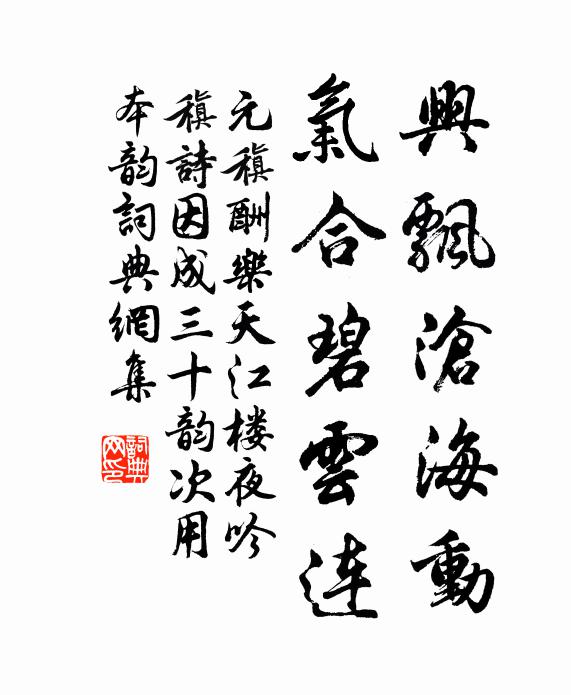 興飄滄海動
氣合碧雲連
元稹酬樂天江楼夜吟
稹詩因成三十韵次用
本韵詞典網集
詞典網印